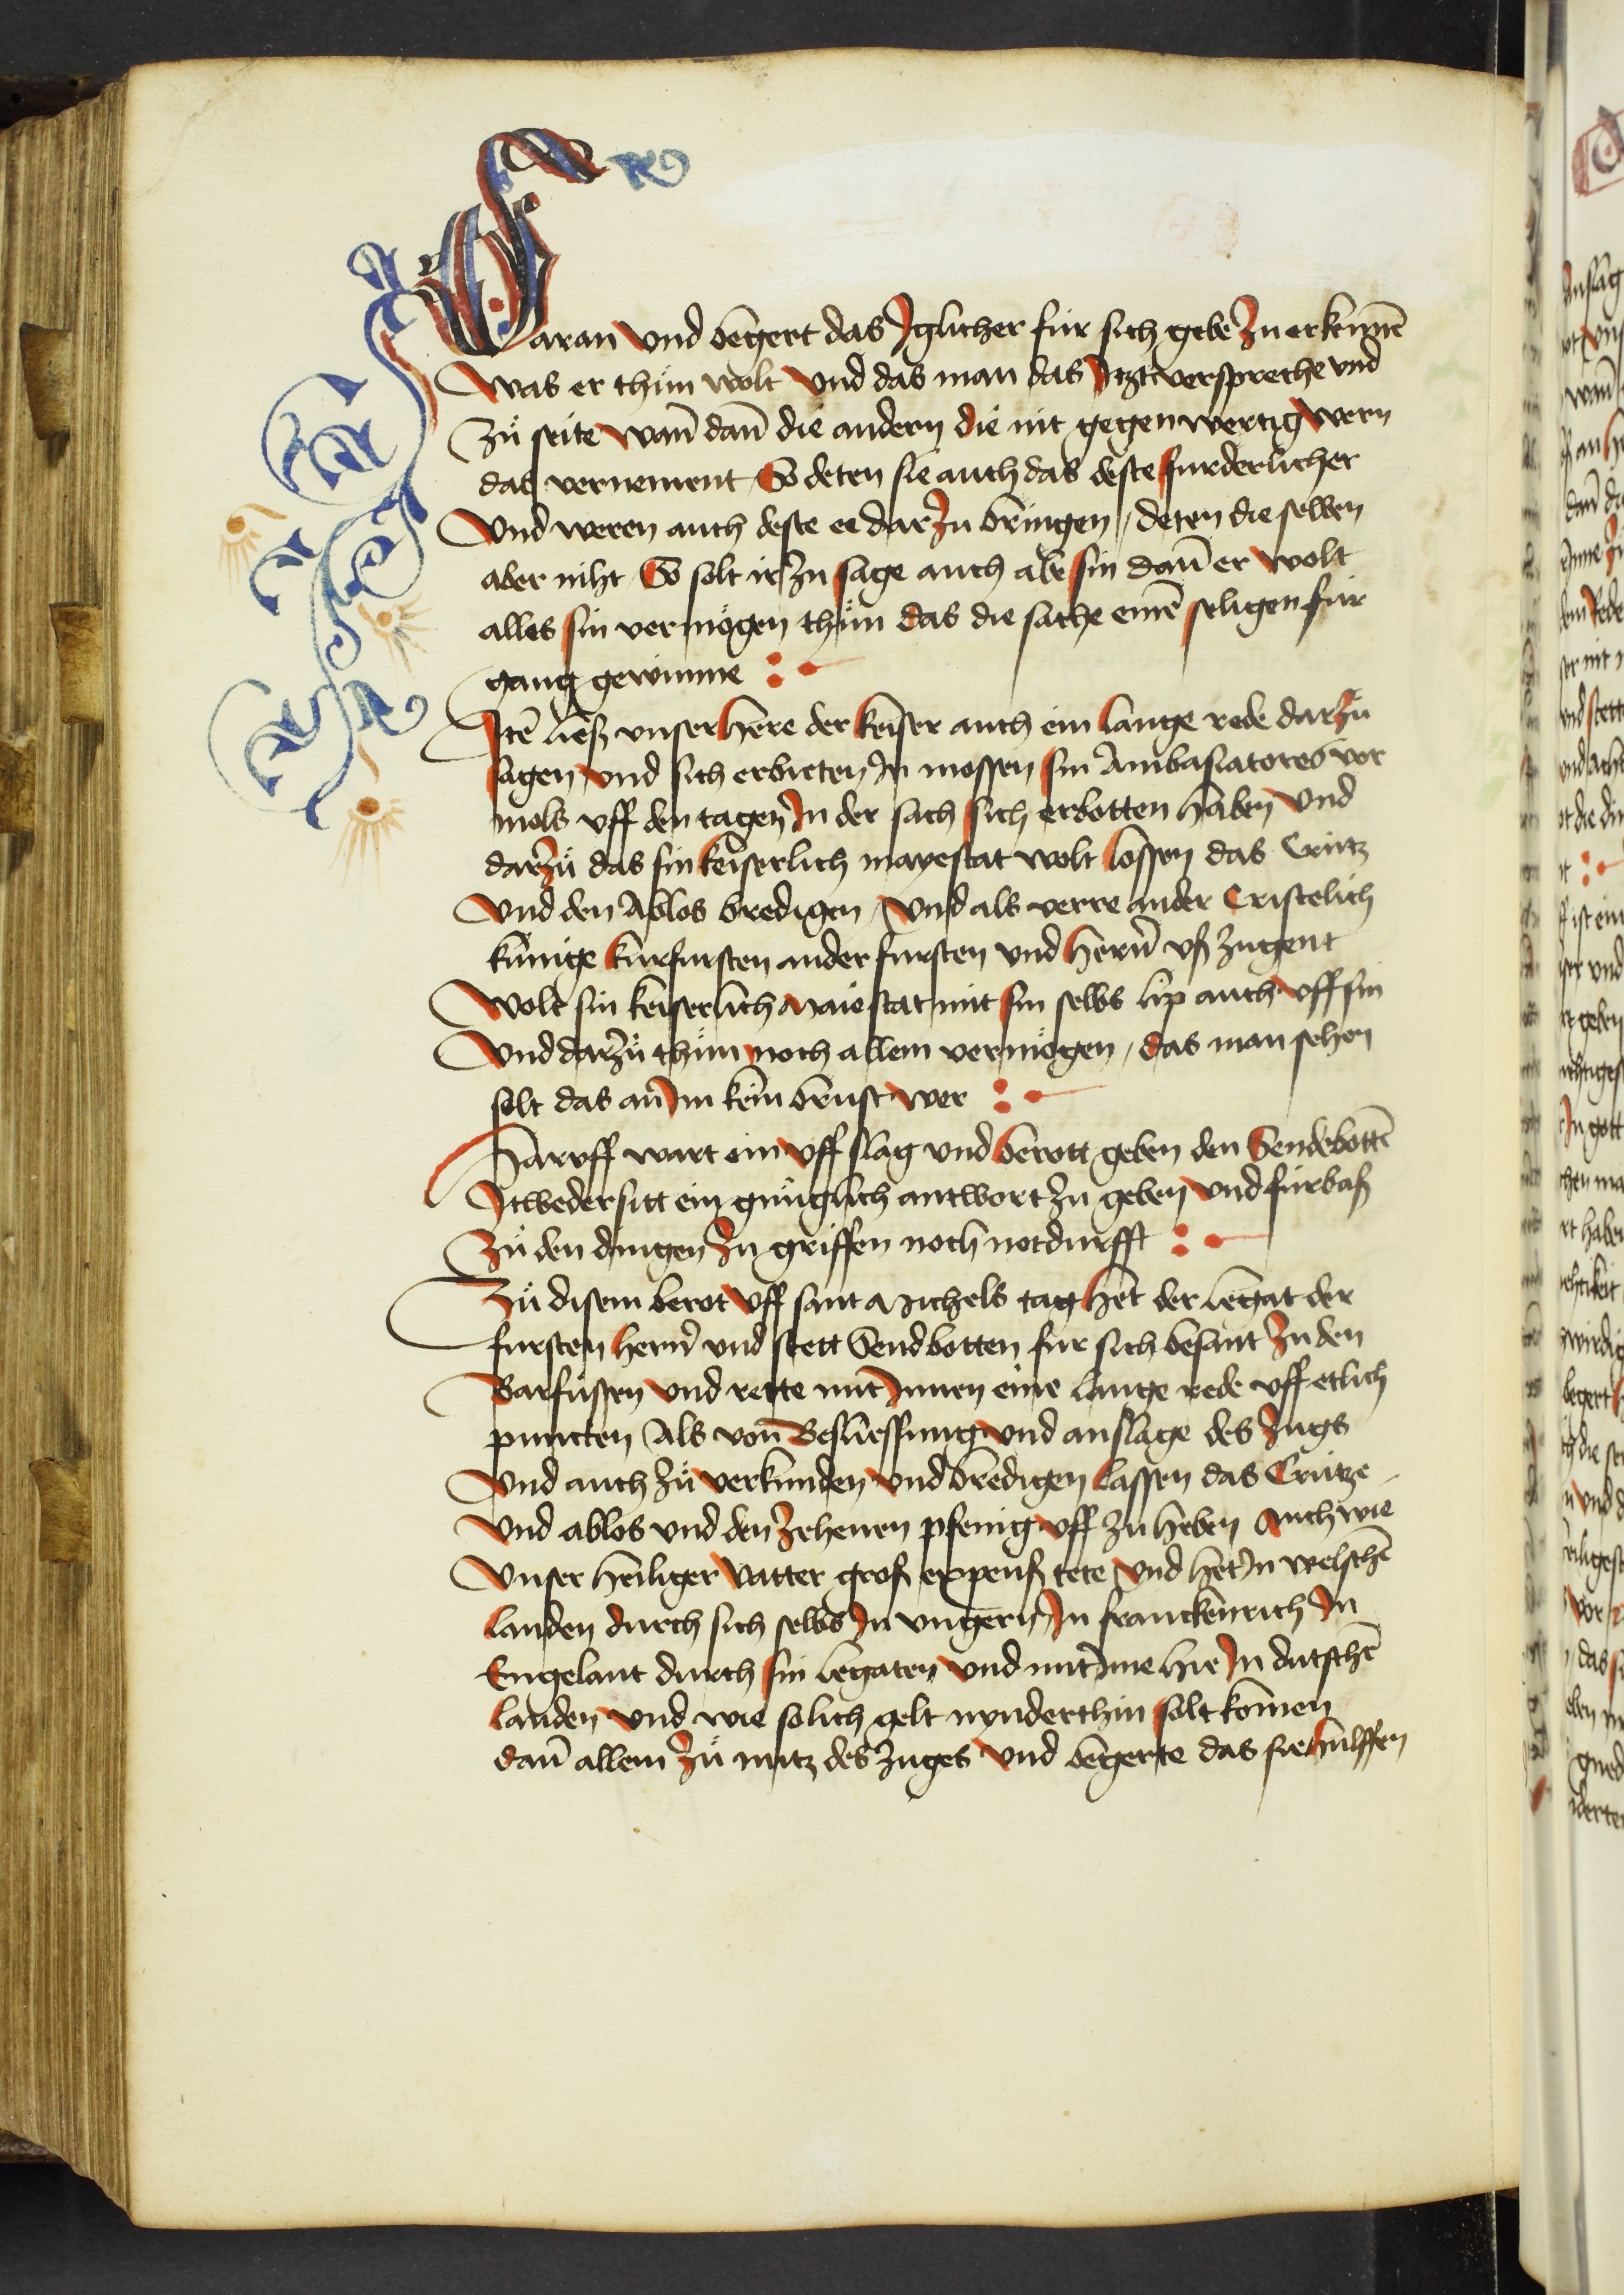 Daran vnd begert das Jglicher für sich gebe zu erkennē
Was er thůn wolt vnd das man das Jtzt verspreche vnd
Zů seite wañ dañ die andern die nit gegenwertig wern
das vernement So deten sie auch das deste furderlicher
Vnd weren auch deste ee dar zu bringen / deten die selben
aber niht So solt ir zu sage auch abe sin dañ er wolt
alles sin vermögen thůn das die sache einē seligen für
gang gewinne :
Jtē liesz vnser here der keiser auch ein lange rede dar zů
sagen vnd sich erbieten Jn mossen sin Ambasiatores vor
mols vff den tagen Jn der sach sich erbotten haben vnd
darzů das sin keiserlich mayestat wolt lossen das Crútz
Vnd den Ablos bredigen / Vnd als verre ander Cristelich
kúnige kurfursten ander fursten vnd herñ vß zugent
Wolt sin keiserlich Maiestat mit sin selbs lip auch vff sin
Vnd darzů thůn noch allem vermögen / das man sehen
solt das an Jm kein brust wer :
Haruff wart ein vff slag vnd berott geben den Sendebottē
Jtweder sitt ein gnůglich antwort zu geben vnd fúrbaß
Zů den dingen zu griffen noch notdurfft :
Zů disem berot vff sant Michels tag het der legat der
fursten herñ vnd stett Sendbotten fur sich besant zu den
Barfůssen vnd rette mit Jnnen eine lange rede vff etlich
puncten Als von Besliessung vnd anslage des Zugs
Vnd auch zů verkúnden vnd bredigen lassen das Crútze
Vnd ablos vnd den zehenen pfenig vff zu heben Auch wie
Vnser heiliger Vatter groß expensß tete Vnd het Jn welschē
landen durch sich selbs Jn vngern Jn franckenrich Jn
Engelant durch sin legaten Vnd mit Jme hie Jn dutschē
landen Vnd wie solich gelt nynderthin solt komen
dañ allein zů nutz des Zuges Vnd begerte das sie hulffen